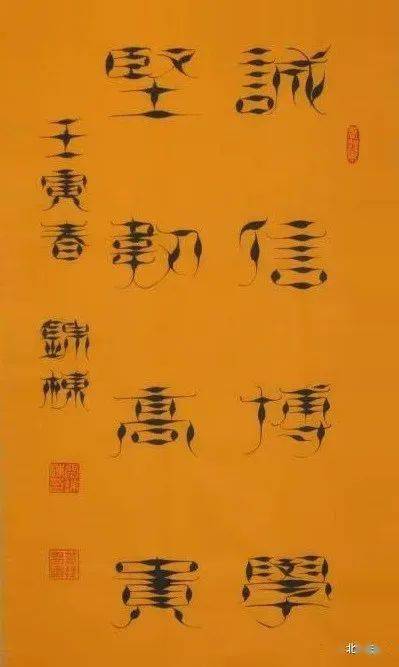 誠信博學
堅韌高貴
壬寅春
棟
北